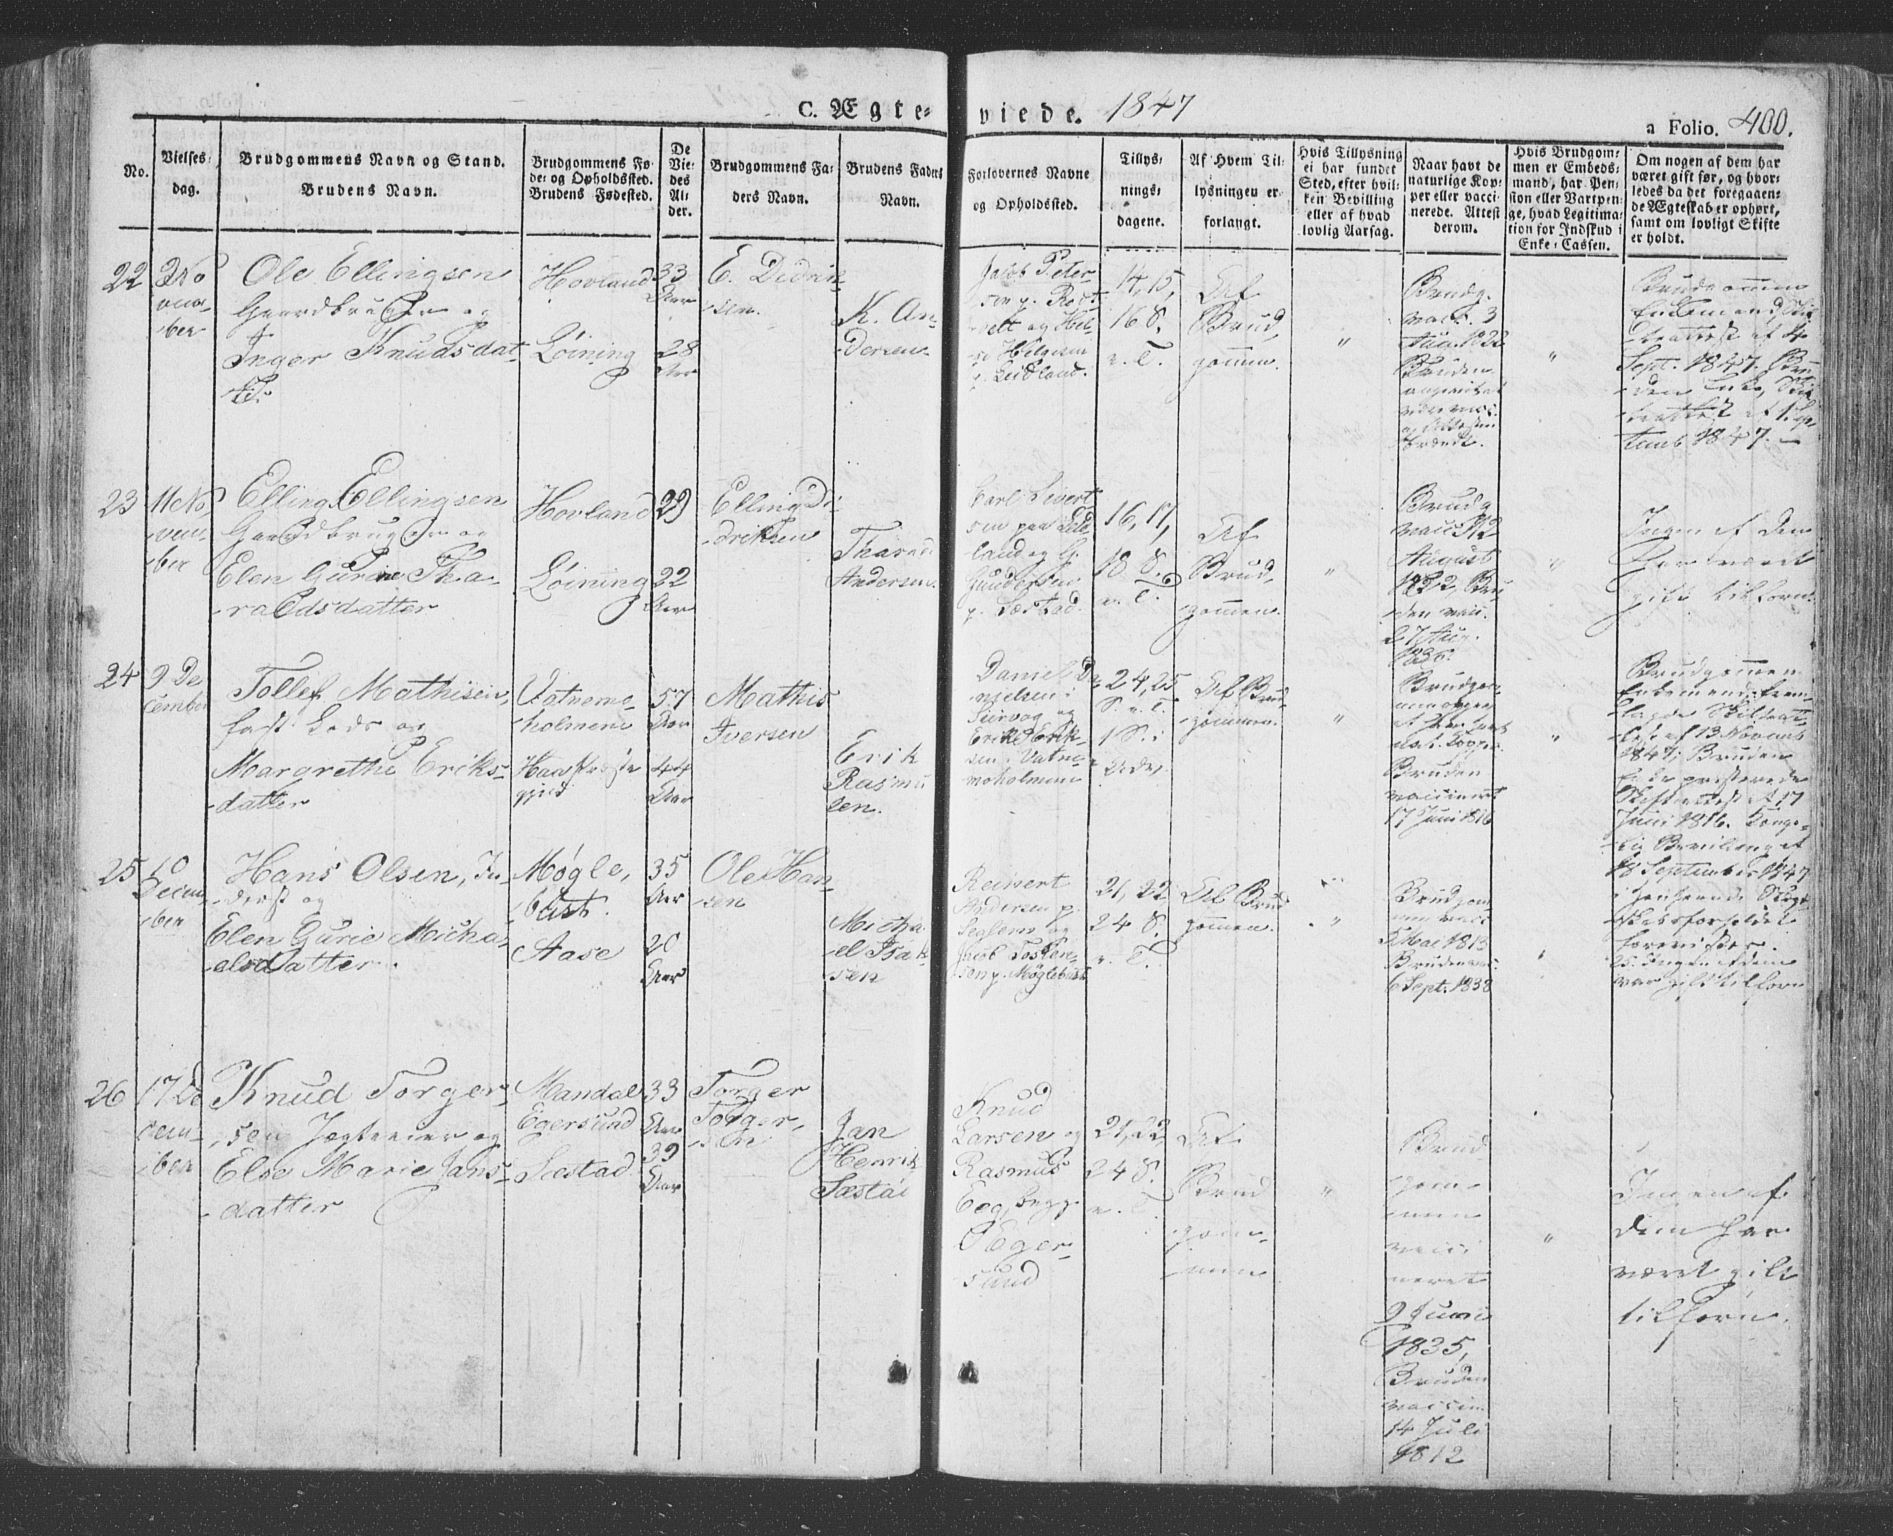 C. Ægteviede. 1847
a Folio. 400.
No.
Vielses-
dag.
Brudgommens Navn og Stand.
Brudens Navn.
Brudgommens Fø-
de- og Opholdssted.
Brudens Fødested.
De
Vie-
des
Al-
der.
Brudgommens Fa-
ders Navn.
Brudens Faders
Navn.
Forlovernes Navne
og Opholdssted.
Tillys-
nings-
dagene.
Af Hvem Til-
lysningen er
forlangt.
Hvis Tillysning
ei har fundet
Sted, efter hvil-
ken Bevilling
eller af hvad
lovlig Aarsag.
Naar havt de
naturlige Kop-
per eller vacci-
nerede. Attest
derom.
Hvis Brudgom-
men er Embeds-
mand, har Pen-
sion eller Vartpen-
ge, hvad Legitima-
tion for Indskud i
Enke-Cassen.
Om nogen af dem har
været gift før, og hvor-
ledes da det foregaaen-
de Ægteskab er ophørt,
samt om lovligt Skifte
er holdt.
22
2 No
vem
ber
Ole Ellingsen
Gaardbruger og
Inger Knudsdat-
t.
Hovland
Løining
33
Aar
28
Aar
E. Didrik-
sen.
K. An-
dersen
Jacob Peter-
sen p.
og Hel-
Helgesen
p. Leidland.
14, 15,
16 S.
e. T.
Af
Brud-
gommen.
"
Brudg.
vacc. 3
1822
Bruden
"
Brudgommen
Enkemand, Ski-
fteattest af 4
Sept. 1847. Bru-
den Enke, Ski-
fteattest af 1 Sep-
temb 1847.
23
11 No
vem
ber
Elling Ellingsen
Gaardbruger og
Elen Gurine Tha-
raldsdatter
Hovland
Løining
29
22
Aar
Elling Di-
driksen
Andersen
Carl Sivert
sen paa
land og G.
Gundersen
p. Sæstad.
16, 17,
18 S.
e. T.
Af
Brud-
gommen.
"
Brudg
vacc. 12
August
1822, Bru
den vacc.
27 Aug.
1836.
"
Ingen af dem
har været
gift tilforn.
24
9 De
cember
Tollef Mathisen,
og
Margrethe Eriks-
datter
Vatnemo-
holmene
57
Aar
44
Aar
Mathis
Iversen
Erik
Rasmu
sen.
Daniel Da-
nielsen i
og
Erik Erik-
sen i Vatne-
moholmene
24, 25
S. e. T.
1 S. i
Adv.
Af Brud-
gommen.
"
Bruden
vaccineret
17 Juni 1816
"
Brudgommen
Enkemand, frem-
lagde Skifteat-
test af 13 Novemb
1847, Bruden
Skifteattest af 17
Juni 1816. Konge-
lig Bevilling af
18 September 1847
i Henseende
foreviser.
25
10
Decem
ber
Hans Olsen, In-
derst og
Elen Gurie Micha-
elsdatter.
Møgle-
bust.
Aase
35
Aar
20
Aar
Ole Han-
sen
Micha
el Isak
sen
Reinert
Andersen p.
Seglem og
Jacob
sen p. Møglebust
21, 22
24 S.
e. T.
Af Brud
gommen.
"
Brudgom-
men vacc
5 Mai 1813
Bruden vacc.
6 Sept. 1838
"
25. Ingen af dem
var gift tilforn
26
17 De
cem
ber
Knud Torger-
sen, Jægteeier og
Else Marie Jans-
datter
Mandal
Egersund
Sæstad
33
Aar
39
Aar
Torger
Torger-
sen
Jan
Henrik
Sæstad
Knud
Larsen og
Rasmus
Eeg, begge
i Eger-
sund
21, 22
24 S.
e. T.
Af
Brud
gom-
men
"
Brud
gom-
men
vacci
neret
9 Juni
1835,
Bruden
vaccin.
14 Juli
1812
"
Ingen af
dem har
været gift
tilforn.